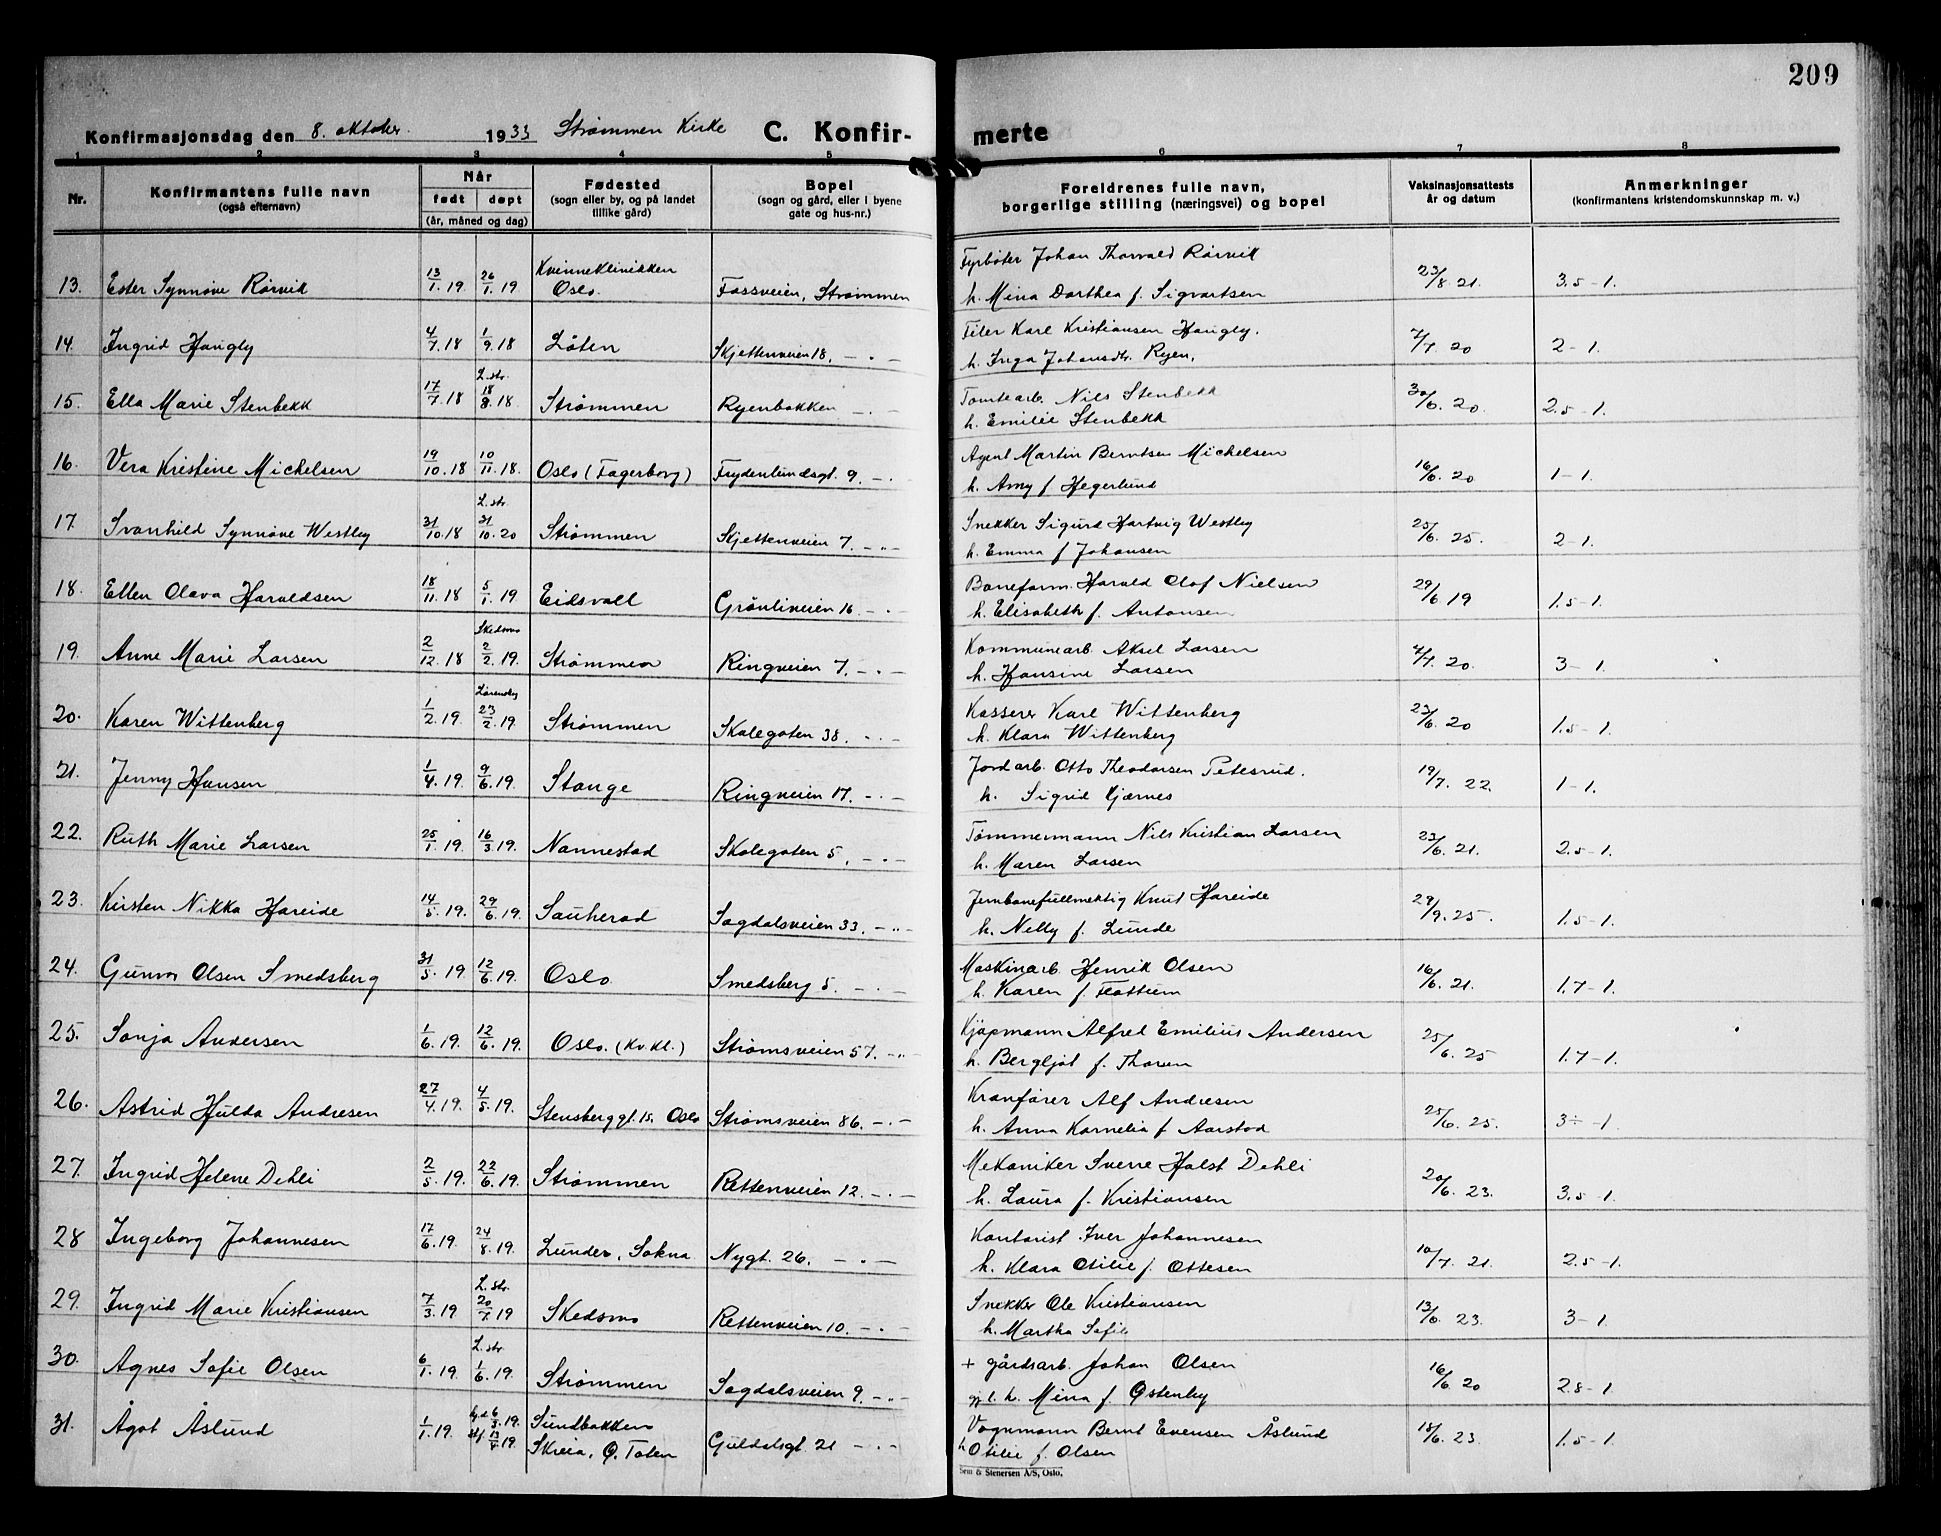 209
Konfirmasjonsdag den 8. oktober. 1933 Strømmen Kirke C. Konfir- merte
1 2 3 4 5 6 7 8
Nr. Konfirmantens fulle navn (også efternavn) Når født døpt (år, måned og dag) Fødested (sogn eller by, og på landet tillike gård) Bopel (sogn og gård, eller i byene gate og hus-nr.) Foreldrenes fulle navn, borgerlige stilling (næringsvei) og bopel Vaksinasjonsattests år og datum Anmerkninger (konfirmantens kristendomskunnskap m. v.)
Kvinneklinikken Fyrbøter Johan Thorvald Rørvik
13. Ester Synnøve Rørvik 13/1.19 26/1.19 Oslo. Fossveien, Strømmen h. Mina Dorthea f. Sigvartsen 23/8 21. 3.5 - 1.
Filer Karl Kristiansen Haugly.
14. Ingrid Haugly 4/7.18 1/9.18 Løten Skjettenveien 18. - " - h. Inga Johansdtr. Ryen. 7/7 20 2 - 1.
L. str. Tomtearb. Nils Stenbekk
15. Ella Marie Stenbekk 17/7.18 18/8.18 Strømmen Ryenbakken - " - h. Emilie Stenbekk 30/6. 20. 2.5 - 1.
Agent Martin Berntsen Michelsen
16. Vera Kristine Michelsen 19/10.18 10/11.18. Oslo (Fagerborg) Frydenlundsgt. 9. - " - h. Amy f. Hegerlund 16/6. 20 1 - 1.
L. str. Snekker Sigurd Hartvig Westby
17. Svanhild Synnøve Westby 31/10.18 31/10.20 Strømmen Skjettenveien 7. - " - h. Emma f. Johansen 25/6. 25. 2 - 1.
Baneform. Harald Olof Nielsen
18. Ellen Olava Haraldsen 18/11.18 5/1.19 Eidsvoll Grønliveien 16. - " - h. Elisabeth f. Antonsen 29/6 19 1.5 - 1.
Skedsmo Kommunearb. Aksel Larsen
19. Anne Marie Larsen 2/12.18 2/2.19. Strømmen Ringveien 7. - " - h. Hansine Larsen 7/7. 20. 3 - 1.
Lørenskog Kasserer Karl Wittenberg
20. Karen Wittenberg 1/2.19. 23/2.19 Strømmen Skolegaten 38. - " - h. Klara Wittenberg 23/6. 20 1.5 - 1.
Jordarb. Otto Theodorsen Petesrud.
21. Jenny Hansen 1/4.19 9/6.19 Stange Ringveien 17. - " - h. Sigrid Kjærnes 19/7. 22. 1 - 1.
Tømmermann Nils Kristian Larsen
22. Ruth Marie Larsen 25/1.19. 16/3.19. Nannestad Skolegaten 5. - " - h. Maren Larsen 23/6. 21. 2.5 - 1.
Jernbanefullmektig Knut Hareide
23. Kirsten Nikka Hareide 14/5.19. 29/6.19. Sauherad Sagdalsveien 33. - " - h. Nelly f. Lunde 29/9. 25. 1.5 - 1.
Maskinarb. Henrik Olsen
24. Gunvor Olsen Smedsberg 31/5.19 12/6.19. Oslo Smedsberg 5. - " - h. Karen f. Flottum 16/6. 21. 1.7 - 1.
Kjøpmann Alfred Emilius Andersen
25. Sonja Andersen 1/6.19. 12/6.19. Oslo. (Kv. Kl.) Strømsveien 57. - " - h. Bergljot f. Thoresen 25/6. 25 1.7 - 1.
Kranfører Alf Andresen
26. Astrid Hulda Andresen 27/4.19. 4/5.19. Stensberggt. 15. Oslo Strømsveien 86. - " - h. Anna Kornelia f. Aarstad 25/6. 25. 3 ÷ - 1.
Mekaniker Sverre Holst Dehli
27. Ingrid Helene Dehli 2/5.19. 22/6.19. Strømmen Rettenveien 12. - " - h. Laura f. Kristiansen 20/6. 23. 3.5 - 1.
Kontorist. Iver Johannesen
28 Ingeborg Johannesen 17/6.19. 24/8.19. Lunder, Sokna Nygt. 26. - " - h. Klara Otilie f. Ottesen 10/7. 21. 2.5 - 1.
L. str. Snekker Ole Kristiansen
29. Ingrid Marie Kristiansen 7/3.19 20/7.19 Skedsmo Rettenveien 10. - " - h. Martha Sofie 13/6. 23. 3 - 1.
L. str. + gårdsarb. Johan Olsen
30. Agnes Sofie Olsen 6/1.19. 1/6.19. Strømmen Sagdalsveien 9. - " - gjl. h. Mina f. Østenby 16/6. 20 2.8 - 1.
hj.d. 6/3.19. Sundbakken Vognmann Bernt Evensen Åslund
31. Ågot Åslund 1/1.19. stf. 13/4.19. Skreia, Ø. Toten Guldalsgt 21 - " - h Otilie f. Olsen 18/6. 23. 1.5 - 1.
Sem & Stenersen A/S, Oslo.